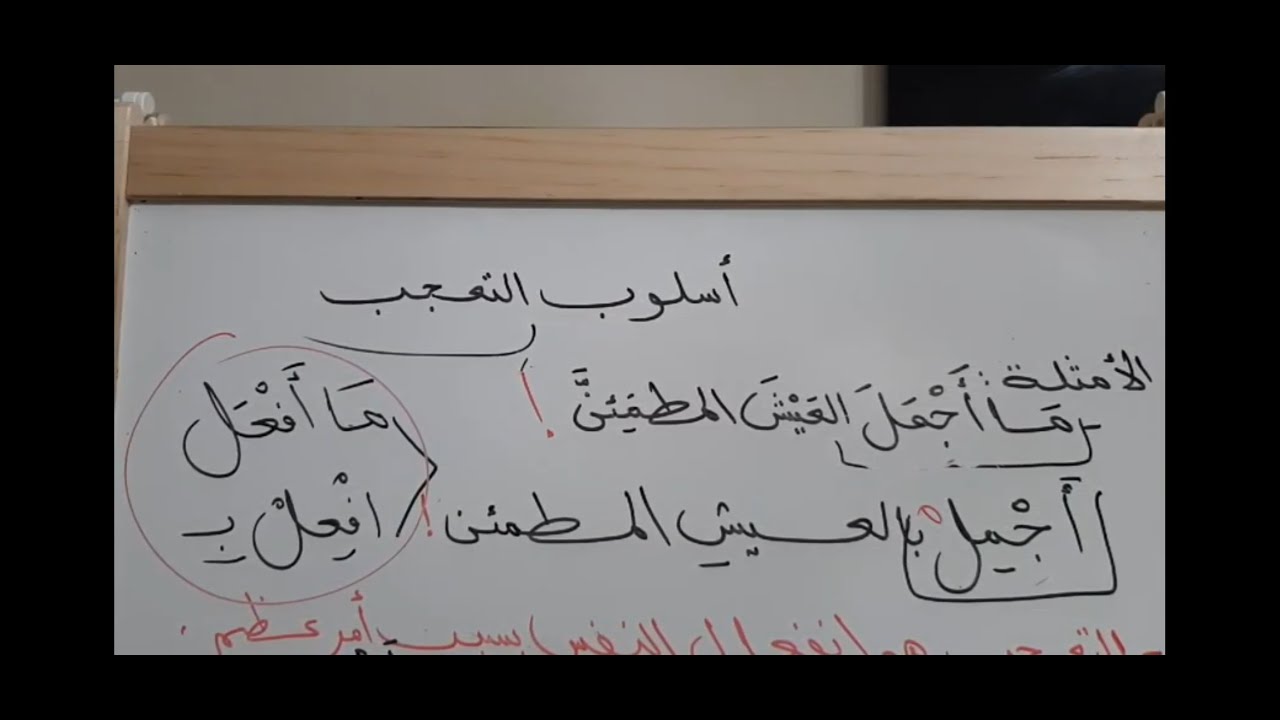 أسلوب التعجب
الأمثلة :
مَا أَجْمَلَ العَيْشَ المطمَئِنَّ !
أَجْمِلْ بالعيشِ المطمئن !
مَا أَفْعَل
افْعِلْ بِـ
- التعجب هو انفعال النفس بسبب أمر عظيم .